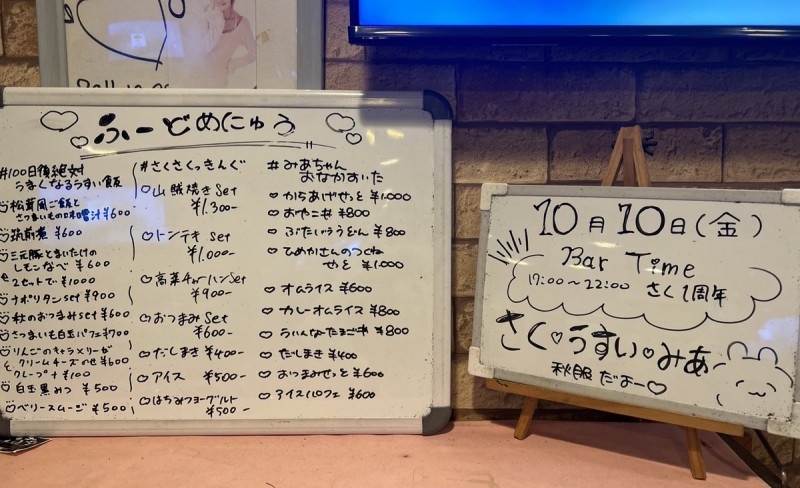 ふーどめにゅう
#100日後絶対
うまくなるうすい飯
松茸風ご飯と
さつまいもの味噌汁 ¥600
筑前煮 ¥600
三元豚とまいたけの
レモンなべ ¥600
2セットで ¥1000
ナポリタンset ¥900
秋のおつまみset ¥600
さつまいも白玉パフェ ¥700
りんごのキャラメリーゼ
クリームチーズのせ ¥600
クレープ ¥100
白玉黒みつ ¥500
ベリースムージー ¥500
#さくさくっきんぐ
山賊焼き Set
¥1.300-
トンテキ Set
¥1.000-
高菜チャーハン Set
¥900-
おつまみ Set
¥600-
だしまき ¥400-
アイス ¥500-
はちみつヨーグルト
¥500-
#みあちゃん
おなかすいた
からあげせっと ¥1.000
おやこ丼 ¥800
ぶたじゅううどん ¥800
ひめかさんのつくね
せっと ¥1.000
オムライス ¥600
カレーオムライス ¥800
¥800
だしまき ¥400
おつまみせっと ¥600
アイスパフェ ¥600
10月10日(金)
Bar Time
17:00~22:00 さく1周年
さく♡うすい♡みあ
秋服だよー♡